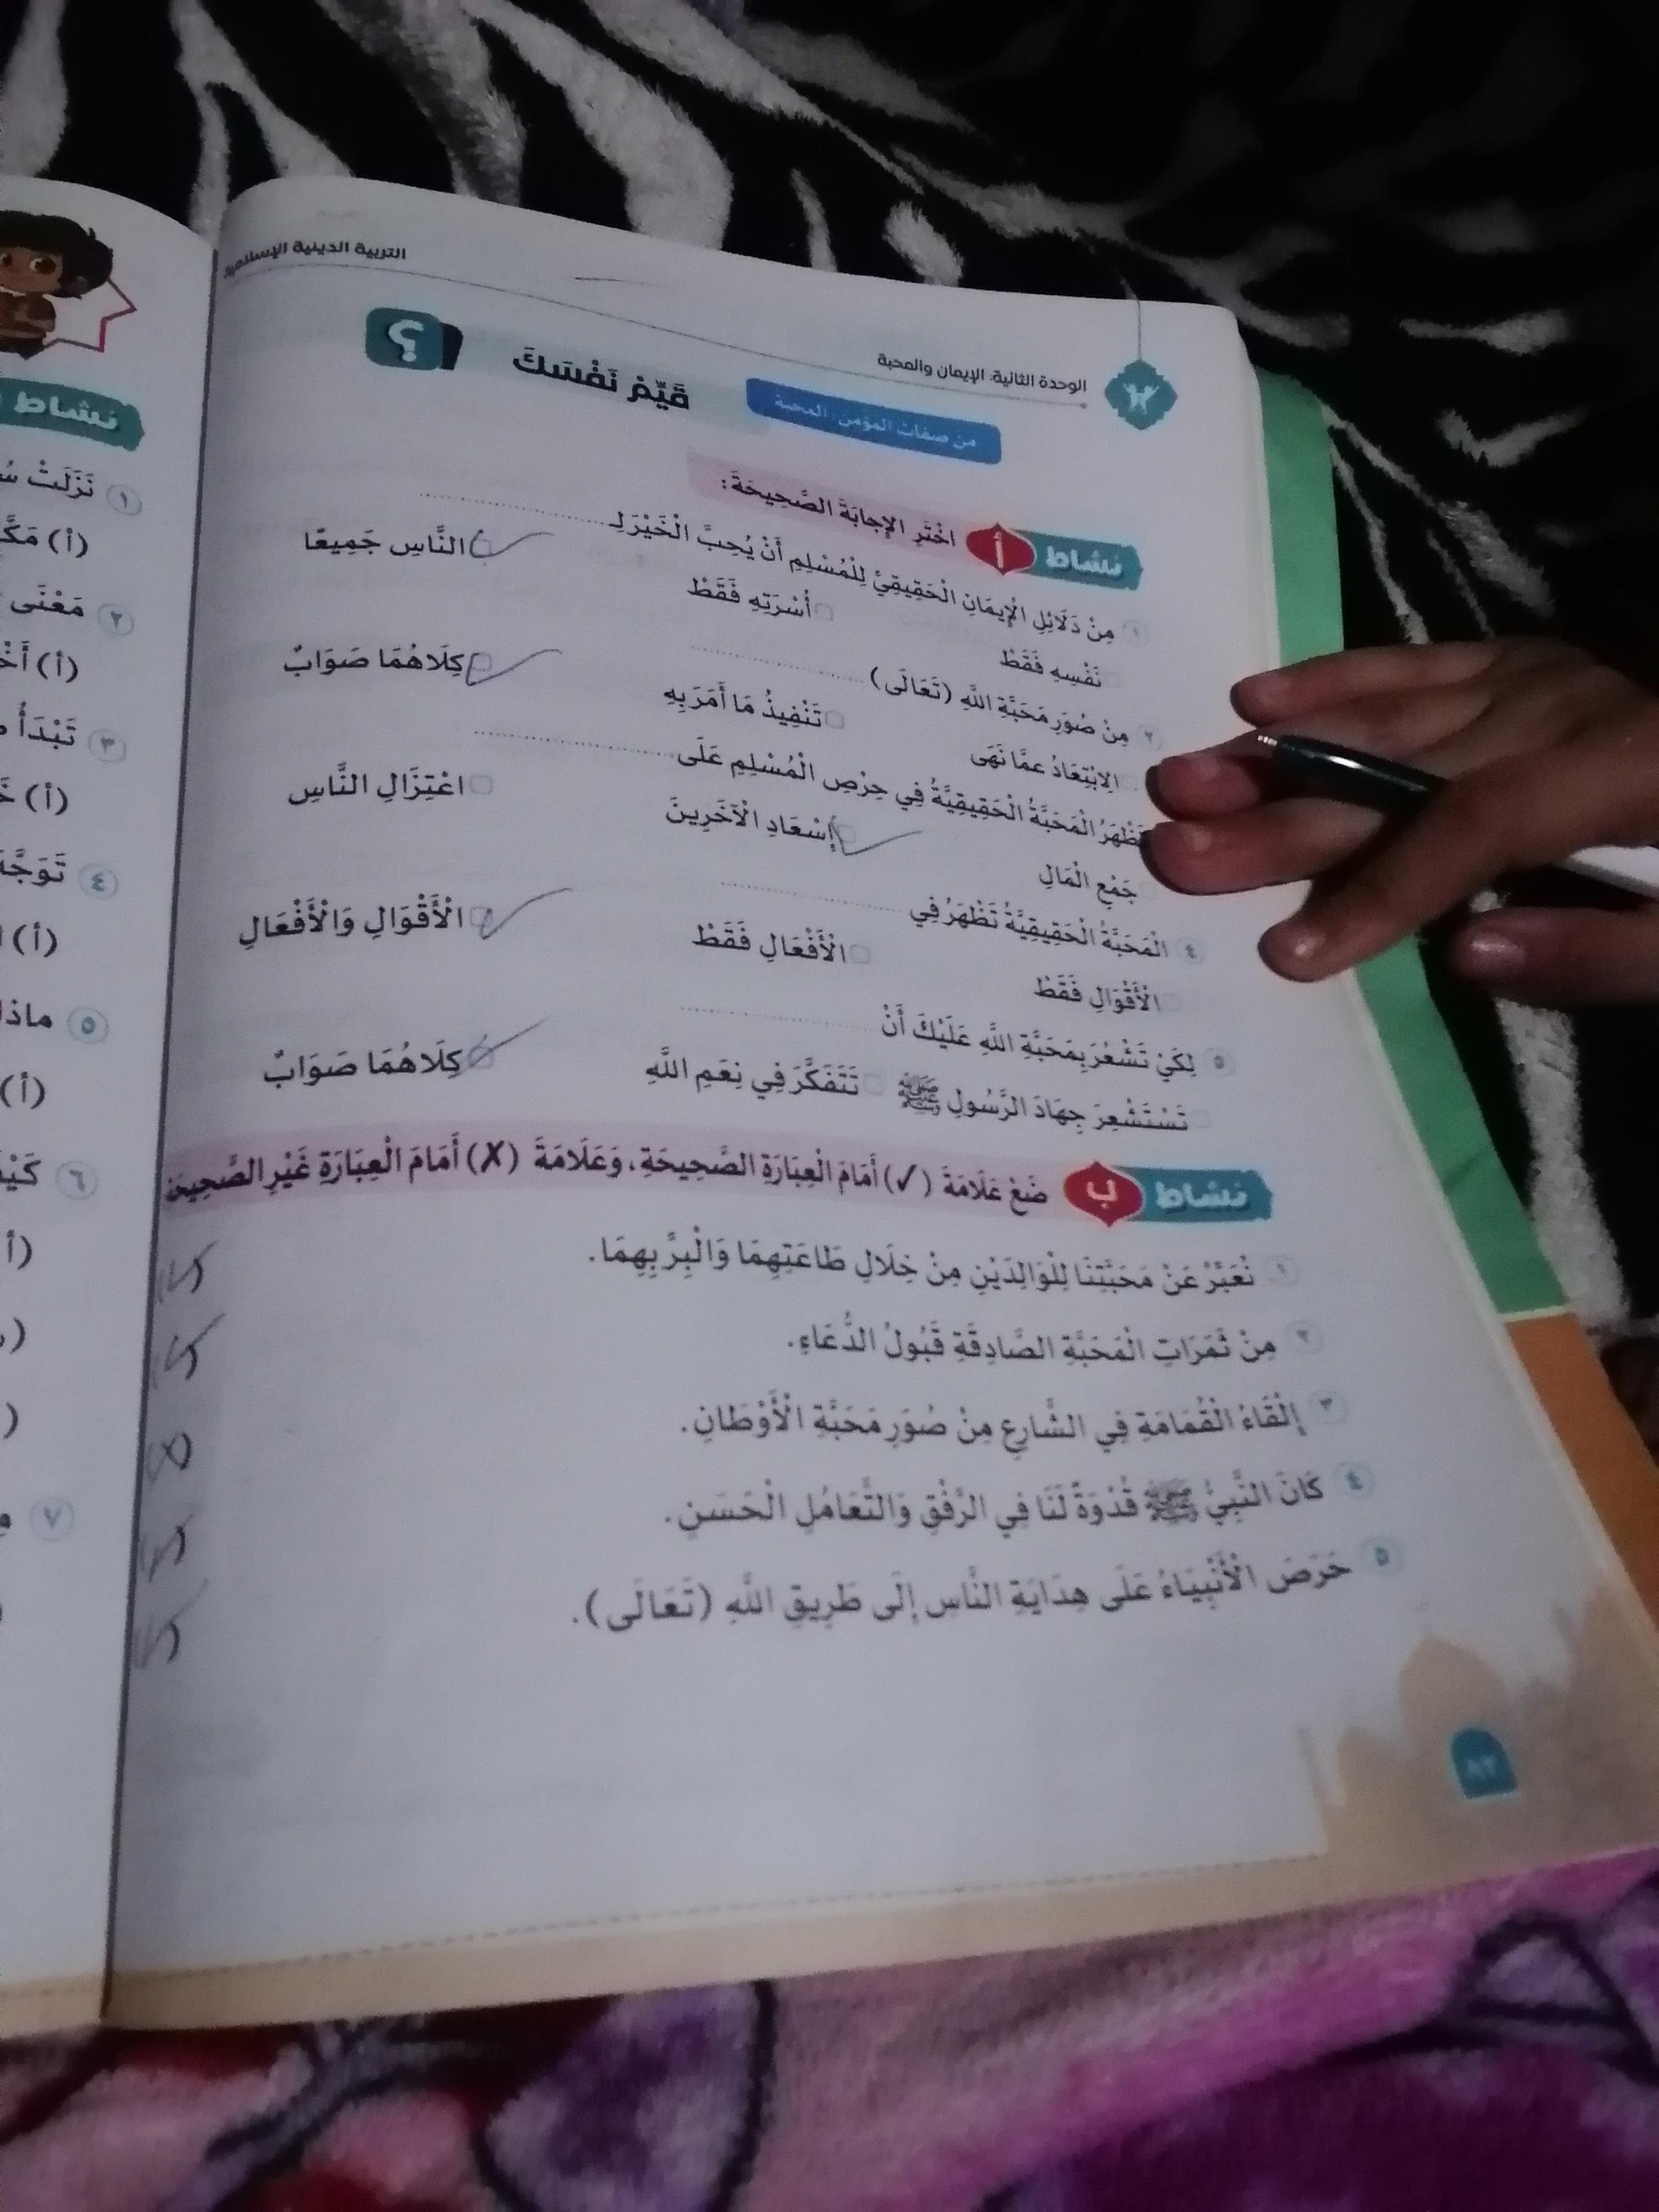 التربية الدينية الإسلامية
الوحدة الثانية: الإيمان والمحبة
من صفات المؤمن: المحبة
قَيِّمْ نَفْسَكَ
؟
نشاط أ اخْتَرِ الإِجابَةَ الصَّحِيحَةَ:
١ مِنْ دَلَائِلِ الْإِيمَانِ الْحَقِيقِيِّ لِلْمُسْلِمِ أَنْ يُحِبَّ الْخَيْرَ لِـ
نَفْسِهِ فَقَطْ أُسْرَتِهِ فَقَطْ النَّاسِ جَمِيعًا
٢ مِنْ صُوَرِ مَحَبَّةِ اللَّهِ (تَعَالَى)
الِابْتِعَادُ عَمَّا نَهَى تَنْفِيذُ مَا أَمَرَ بِهِ كِلَاهُمَا صَوَابٌ
تَظْهَرُ الْمَحَبَّةُ الْحَقِيقِيَّةُ فِي حِرْصِ الْمُسْلِمِ عَلَى
جَمْعِ الْمَالِ إِسْعَادِ الْآخَرِينَ اعْتِزَالِ النَّاسِ
٤ الْمَحَبَّةُ الْحَقِيقِيَّةُ تَظْهَرُ فِي
الْأَقْوَالِ فَقَطْ الْأَفْعَالِ فَقَطْ الْأَقْوَالِ وَالْأَفْعَالِ
٥ لِكَيْ تَشْعُرَ بِمَحَبَّةِ اللَّهِ عَلَيْكَ أَنْ
تَسْتَشْعِرَ جِهَادَ الرَّسُولِ ﷺ تَتَفَكَّرَ فِي نِعَمِ اللَّهِ كِلَاهُمَا صَوَابٌ
نشاط ب ضَعْ عَلَامَةَ (✓) أَمَامَ الْعِبَارَةِ الصَّحِيحَةِ، وَعَلَامَةَ (✗) أَمَامَ الْعِبَارَةِ غَيْرِ الصَّحِيحَةِ
١ نُعَبِّرُ عَنْ مَحَبَّتِنَا لِلْوَالِدَيْنِ مِنْ خِلَالِ طَاعَتِهِمَا وَالْبِرِّ بِهِمَا. (✓)
٢ مِنْ ثَمَرَاتِ الْمَحَبَّةِ الصَّادِقَةِ قَبُولُ الدُّعَاءِ. (✓)
٣ إِلْقَاءُ الْقُمَامَةِ فِي الشَّارِعِ مِنْ صُوَرِ مَحَبَّةِ الْأَوْطَانِ. (✗)
٤ كَانَ النَّبِيُّ ﷺ قُدْوَةً لَنَا فِي الرِّفْقِ وَالتَّعَامُلِ الْحَسَنِ. (✓)
٥ حَرَصَ الْأَنْبِيَاءُ عَلَى هِدَايَةِ النَّاسِ إِلَى طَرِيقِ اللَّهِ (تَعَالَى). (✓)
٨٢
نشاط
١ نَزَلَتْ
(أ)
٢ مَعْنَى
(أ)
٣ تَبْدَأُ
(أ)
٤
(أ)
٥ ماذا
(أ)
٦
(أ
٧